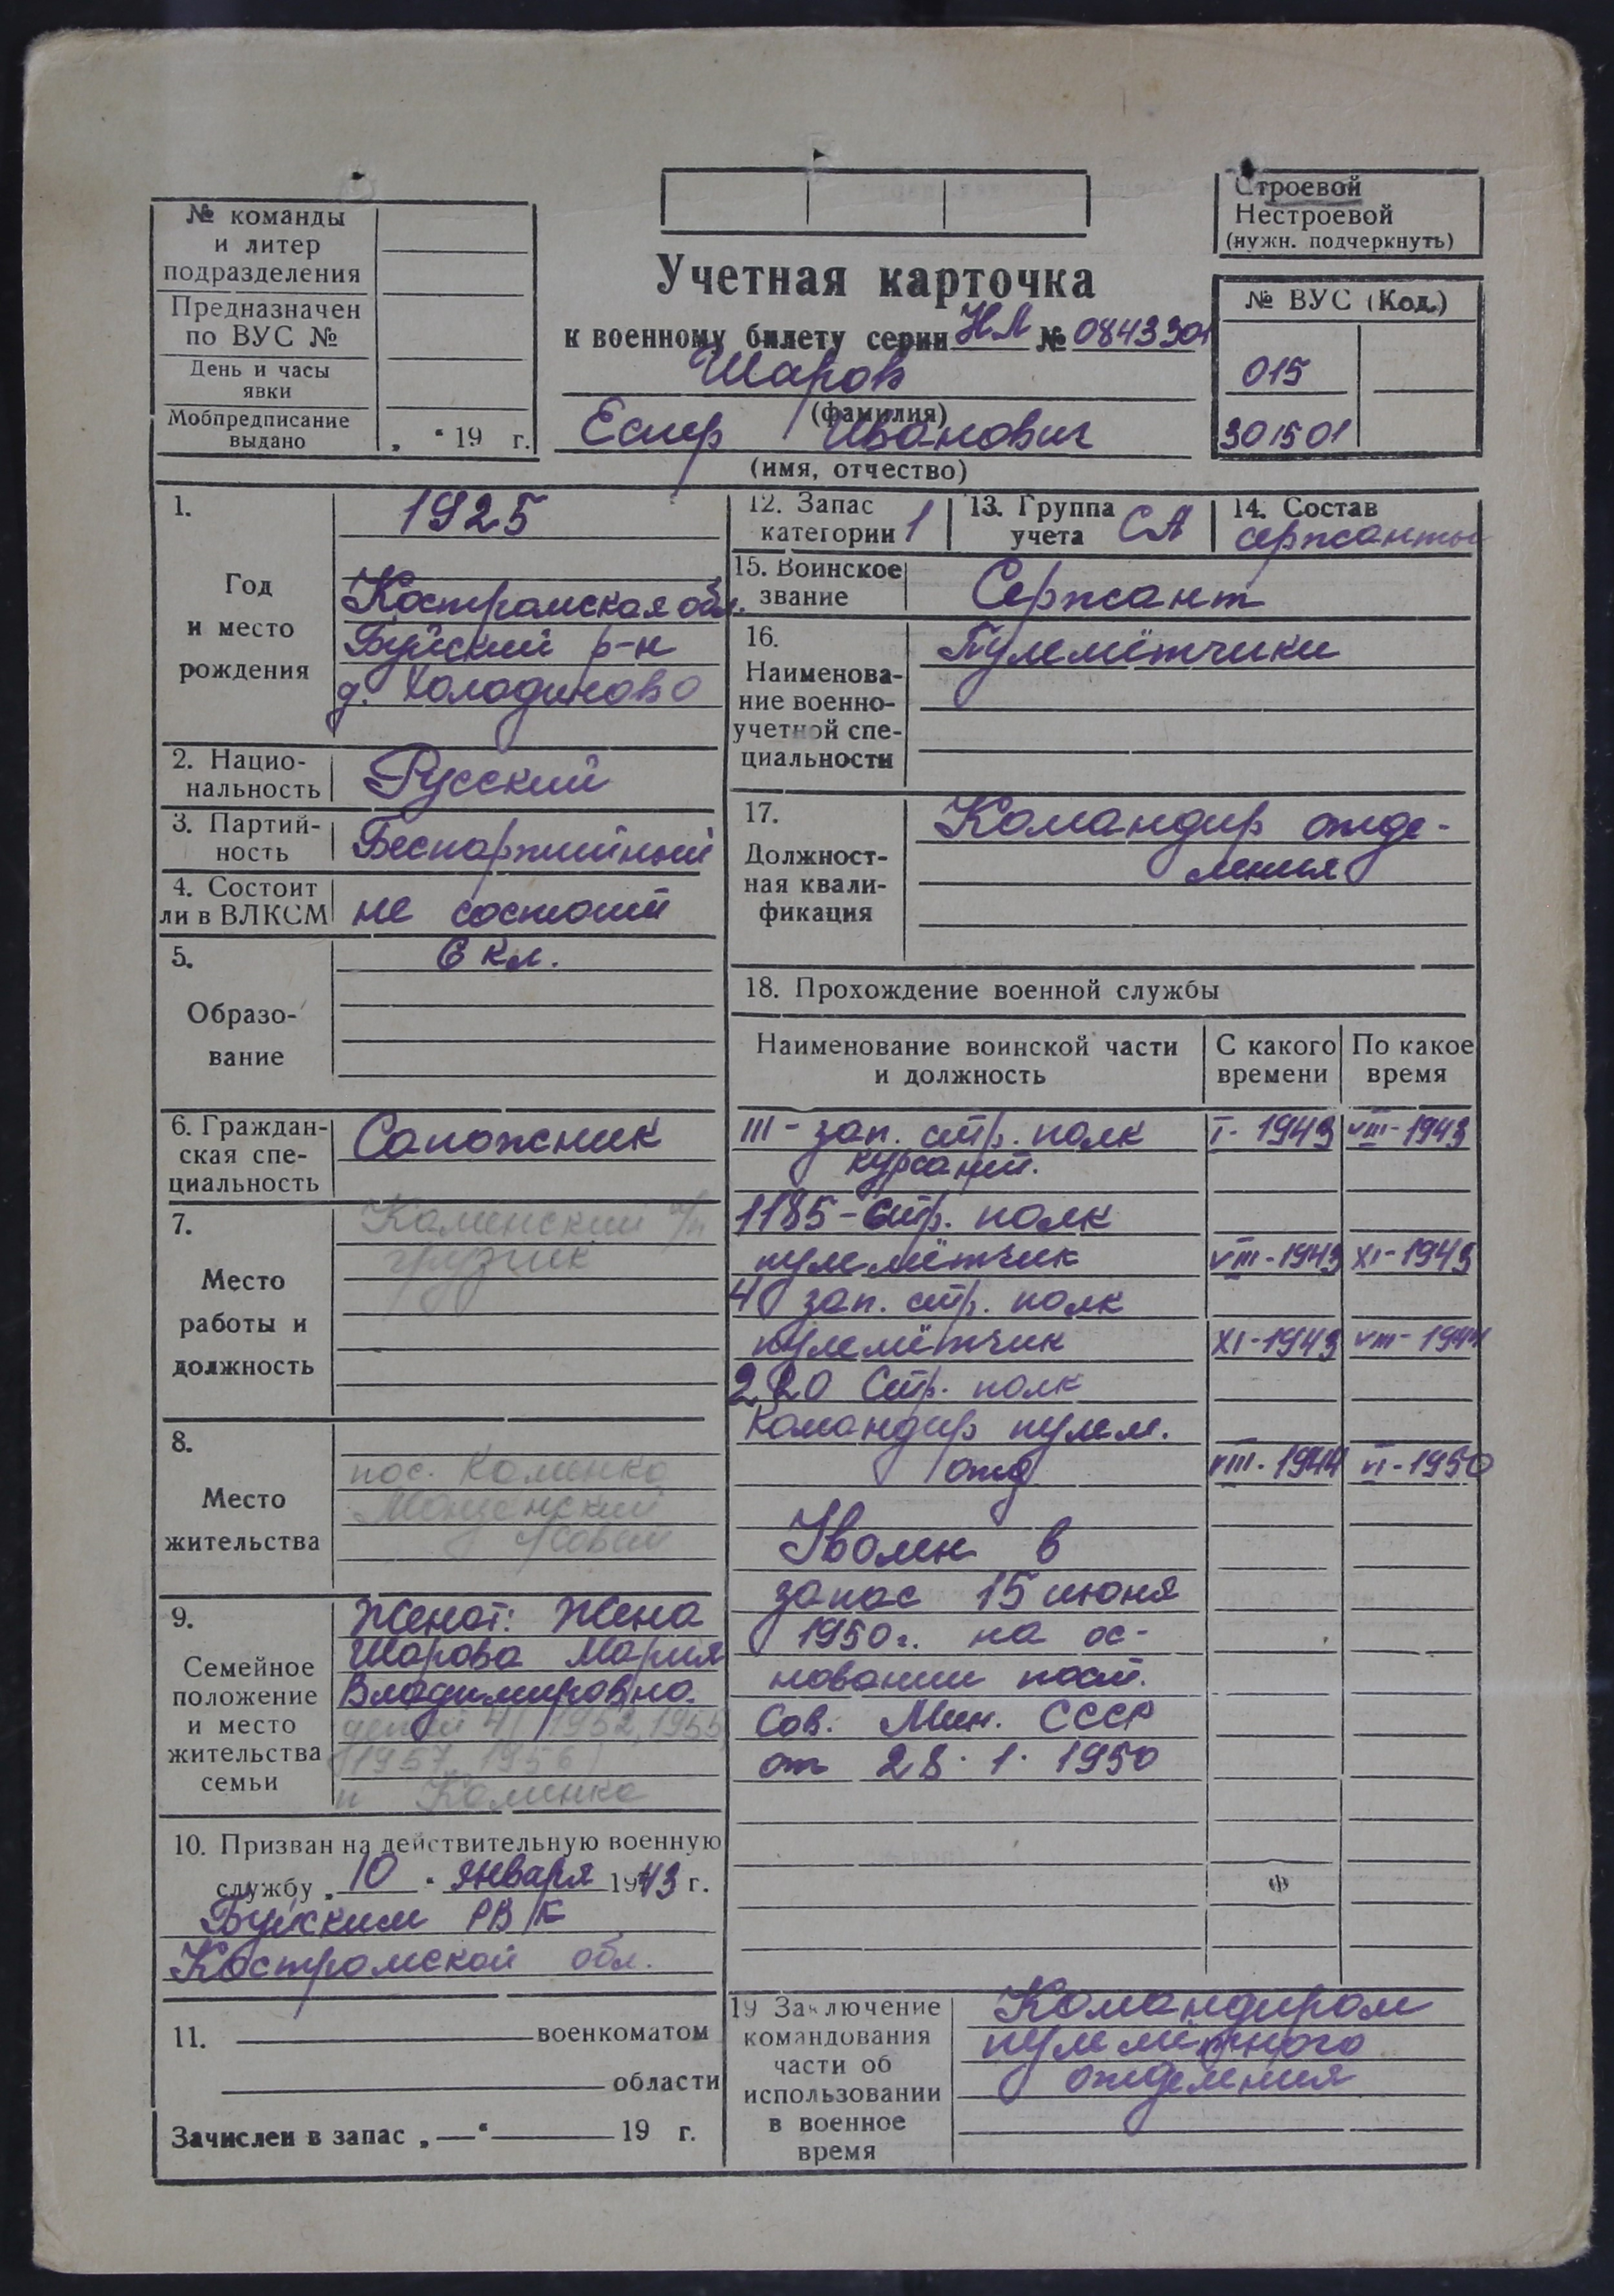 № команды
и литер
подразделения
Предназначен
по ВУС №
День и часы
явки
Мобпредписание
выдано „ “ 19 г.
Строевой
Нестроевой
(нужн. подчеркнуть)
Учетная карточка
к военному билету серии НЛ № 0843304
Шаров
(фамилия)
Еспер Иванович
(имя, отчество)
№ ВУС (Код.)
015
301501
1.
Год
и место
рождения
1925
Костромская обл.
Буйский р-н
д. Холодиново
2. Нацио-
нальность
Русский
3. Партий-
ность
Беспартийный
4. Состоит
ли в ВЛКСМ
не состоит
5.
Образо-
вание
6 кл.
6. Граждан-
ская спе-
циальность
Сапожник
7.
Место
работы и
должность
Каменский
грузчик
8.
Место
жительства
пос. Каменка
совет
9.
Семейное
положение
и место
жительства
семьи
Женат: Жена
Шарова Мария
Владимировна.
детей 4 (1952, 1955
1957, 1956)
п Каменка
10. Призван на действительную военную
службу „ 10 “ января 1943 г.
Буйским РВК
Костромской обл.
11. военкоматом
области
Зачислен в запас „—“ 19 г.
12. Запас
категории 1
13. Группа
учета СА
14. Состав
сержанты
15. Воинское
звание
Сержант
16.
Наименова-
ние военно-
учетной спе-
циальности
Пулемётчики
17.
Должност-
ная квали-
фикация
Командир отде-
ления
18. Прохождение военной службы
Наименование воинской части
и должность
С какого
времени
По какое
время
III - зап. стр. полк I-1943 VIII-1943
курсант.
1185 - стр. полк
пулемётчик VIII-1943 XI-1943
4 зап. стр. полк
пулемётчик XI-1943 VIII-1944
220 Стр. полк
Командир пулем.
отд VIII-1944 VI-1950
Уволен в
запас 15 июня
1950г. на ос-
новании пост.
Сов. Мин. СССР
от 28.1.1950
Ф
19 Заключение
командования
части об
использовании
в военное
время
Командиром
пулемётного
отделения